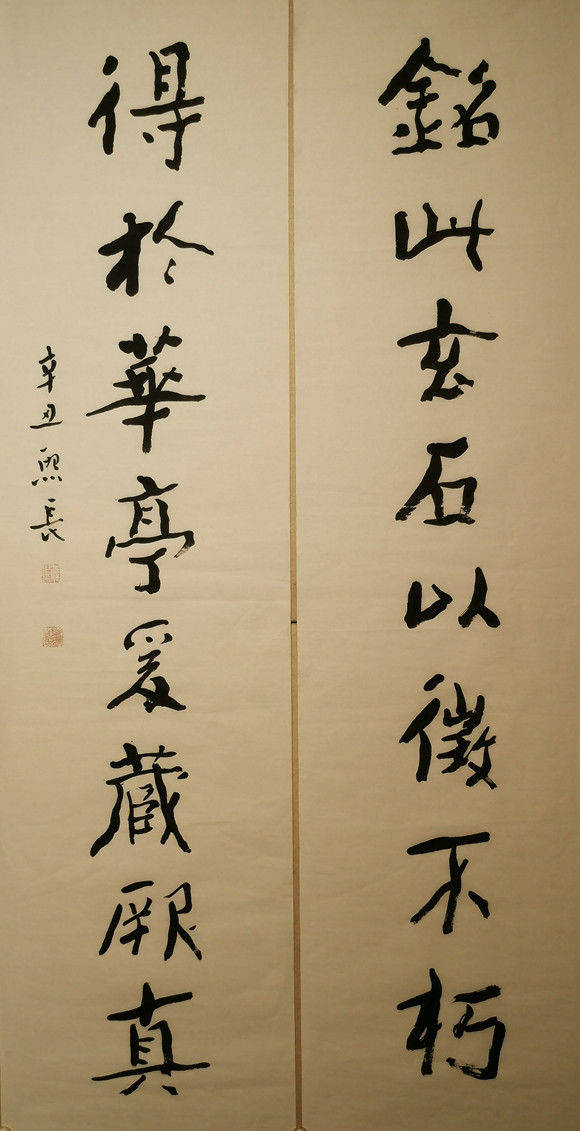 銘此玄石以徵不朽
得於華亭爰藏厥真
辛丑熙長